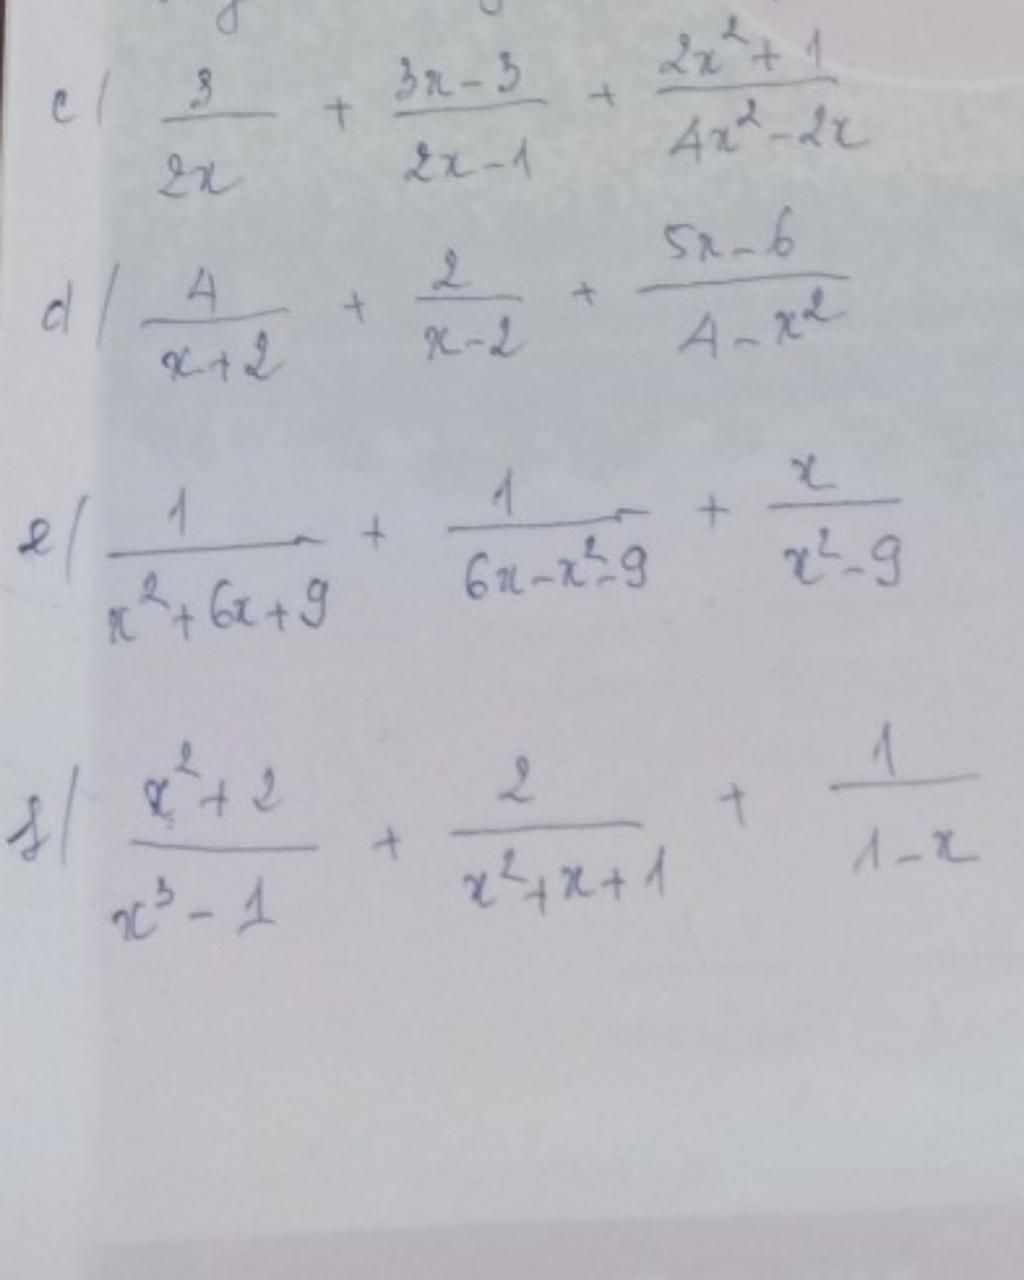 c/ \frac{3}{2x} + \frac{3x-3}{2x-1} + \frac{2x^2+1}{4x^2-2x}
d/ \frac{4}{x+2} + \frac{2}{x-2} + \frac{5x-6}{4-x^2}
e/ \frac{1}{x^2+6x+9} + \frac{1}{6x-x^2-9} + \frac{x}{x^2-9}
f/ \frac{x^2+2}{x^3-1} + \frac{2}{x^2+x+1} + \frac{1}{1-x}